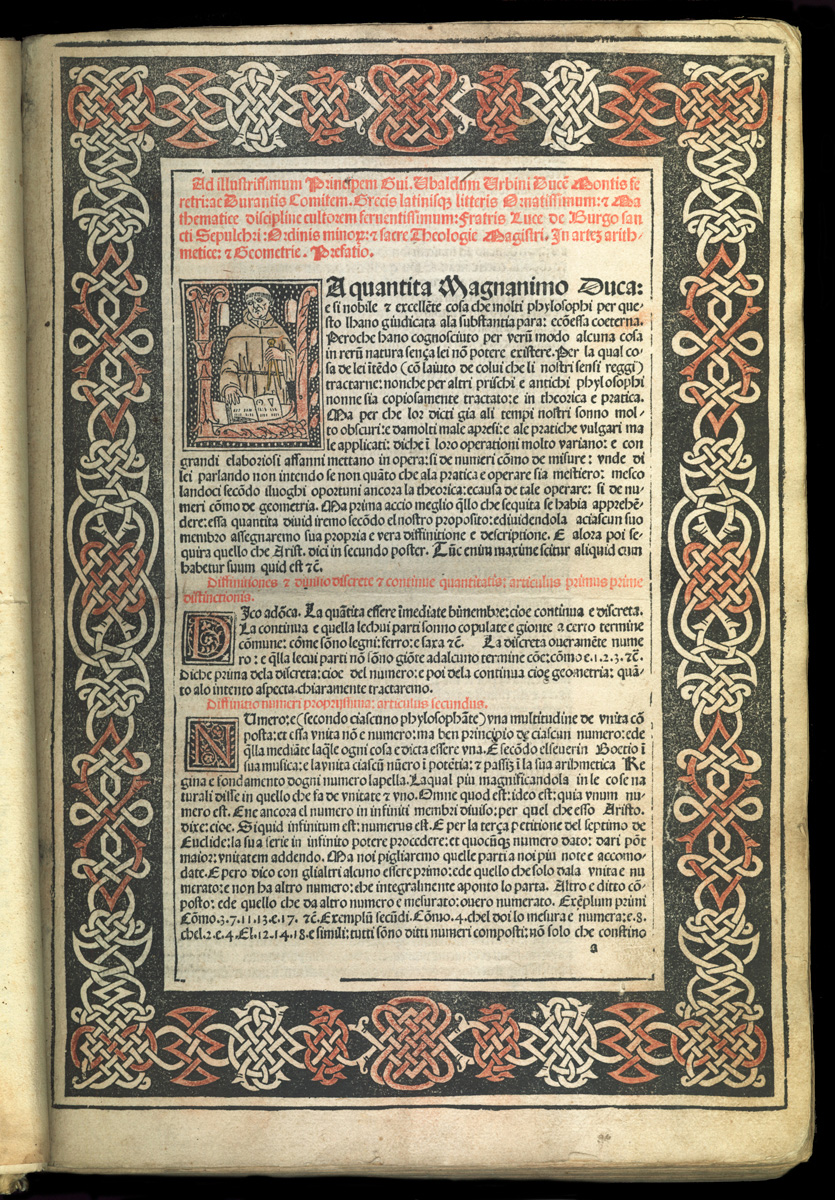 Ad illustrissimum Principem Gui. Ubaldum Urbini Ducē Montis fe
retri: ac Durantis Comitem. Grecis latinisqȝ litteris Ornatissimum: ⁊ Ma
thematice discipline cultorem feruentissimum: Fratris Luce de Burgo san
cti Sepulchri: Ordinis minoꝝ: ⁊ sacre Theologie Magistri. In arteȝ arith-
metice: ⁊ Geometrie. Prefatio.
LA quantita Magnanimo Duca:
e si nobile ⁊ excellēte cosa che molti phylosophi per que-
sto lhano giudicata ala substantia para: ecōessa coeterna.
Peroche hano cognosciuto per verū modo alcuna cosa
in rerū natura sença lei nō potere existere. Per la qual co-
sa de lei ītēdo (cō laiuto de colui che li nostri sensi reggi)
tractarne: nonche per altri prischi e antichi phylosophi
nonne sia copiosamente tractato: e in theorica e pratica.
Ma per che lor dicti gia ali tempi nostri sonno mol-
to obscuri: e damolti male apresi: e ale pratiche vulgari ma
le applicati: diche ī loro operationi molto variano: e con
grandi elaboriosi affanni mettano in opera: si de numeri cōmo de misure: vnde di
lei parlando non intendo se non quāto che ala pratica e operare sia mestiero: mesco
landoci secōdo iluoghi oportuni ancora la theorica: ecausa de tale operare: si de nu-
meri cōmo de geometria. Ma prima accio meglio q̄llo che sequita se habia apprehē-
dere: essa quantita diuidiremo secōdo el nostro proposito: ediuidendola aciascun suo
membro assegnaremo sua propria e vera diffinitione e descriptione. E alora poi se-
quira quello che Arist. dici in secundo poster. Tūc enim maxime scitur aliquid cum
habetur suum quid est ⁊c̄.
Diffinitiones ⁊ diuisio discrete ⁊ continue quantitatis: articulus primus prime
distinctionis.
DIco adōca. La quātita essere īmediate bimembre: cioe continua e discreta.
La continua e quella lechui parti sonno copulate e gionte a certo termine
cōmune: cōme sōno legni: ferro: e saxa ⁊c̄. La discreta oueramēte nume
ro: e q̄lla lecui parti nō sōno giōte adalcuno termine cōe: cōmo e.1.2.3. ⁊c̄.
Diche prima dela discreta: cioe del numero: e poi dela continua cioe geometria: quā-
to alo intento aspecta. chiaramente tractaremo.
Diffinitio numeri proprijssima: articulus secundus.
NUmero: e (secondo ciascuno phylosophāte) vna multitudine de vnita cō
posta: et essa vnita nō e numero: ma ben principio de ciascun numero: ede
q̄lla mediāte laq̄le ogni cosa e dicta essere vna. E secōdo elseuerin Boetio ī
sua musica: e la vnita ciascū nūero ī potētia: ⁊ passiȝ ī la sua arihmetica Re
gina e fondamento dogni numero lapella. Laqual piu magnificandola in le cose na
turali disse in quello che fa de vnitate ⁊ vno. Omne quod est: ideo est: quia vnum nu-
mero est. Ene ancora el numero in infiniti membri diuiso: per quel che esso Aristo.
dixe: cioe. Siquid infinitum est: numerus est. E per la terça petitione del septimo de
Euclide: la sua serie in infinito potere procedere: et quocūqȝ numero dato: dari pōt
maior: vnitatem addendo. Ma noi pigliaremo quelle parti a noi piu note e accomo-
date. E pero dico con glialtri alcuno essere primo: ede quello che solo dala vnita e nu
merato: e non ha altro numero: che integralmente aponto lo parta. Altro e ditto cō-
posto: ede quello che da altro numero e mesurato: ouero numerato. Exēplum primi
Cōmo.3.7.11.13.e.17. ⁊c̄. Exemplū secūdi. Cōmo.4.chel doi lo mesura e numera: e.8.
chel.2.e.4.El.12.14.18.e simili: tutti sōno ditti numeri compositi: nō solo che constino
a